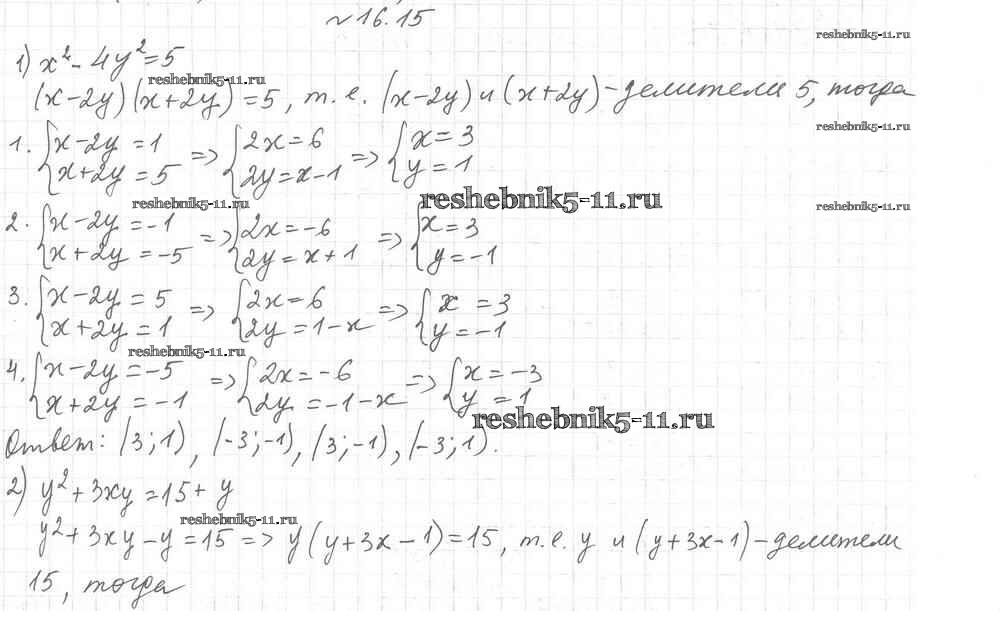 № 16.15
reshebnik5-11.ru
1) x² - 4y² = 5
reshebnik5-11.ru
(x-2y)(x+2y) = 5, т.е. (x-2y) и (x+2y) - делители 5, тогда
reshebnik5-11.ru
1. {x-2y = 1 => {2x = 6 => {x = 3
x+2y = 5 2y = x-1 y = 1
reshebnik5-11.ru
reshebnik5-11.ru
reshebnik5-11.ru
2. {x-2y = -1 => {2x = -6 => {x = 3
x+2y = -5 2y = x+1 y = -1
3. {x-2y = 5 => {2x = 6 => {x = 3
x+2y = 1 2y = 1-x y = -1
reshebnik5-11.ru
4. {x-2y = -5 => {2x = -6 => {x = -3
x+2y = -1 2y = -1-x y = 1
reshebnik5-11.ru
Ответ: (3;1), (-3;-1), (3;-1), (-3;1).
2) y² + 3xy = 15 + y
reshebnik5-11.ru
y² + 3xy - y = 15 => y(y+3x-1) = 15, т.е. y и (y+3x-1) - делители
15, тогда